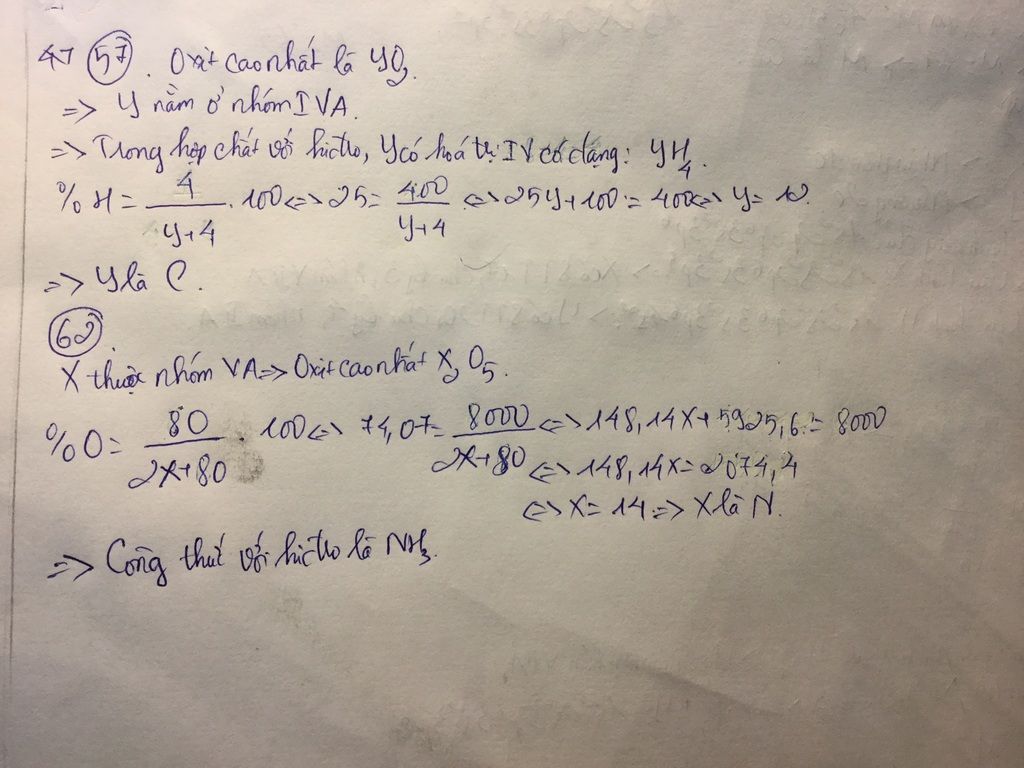 (57). Oxit cao nhất là YO2.
=> Y nằm ở nhóm IVA.
=> Trong hợp chất với hidro, Y có hoá trị IV có dạng: YH4.
%H = 4/(Y+4) . 100 <=> 25 = 400/(Y+4) <=> 25Y + 100 = 400 <=> Y = 12.
=> Y là C.
(62).
X thuộc nhóm VA => Oxit cao nhất X2O5.
%O = 80/(2X+80) . 100 <=> 74,07 = 8000/(2X+80) <=> 148,14X + 5925,6 = 8000
<=> 148,14X = 2074,4
<=> X = 14 => X là N.
=> Công thức với hidro là NH3.